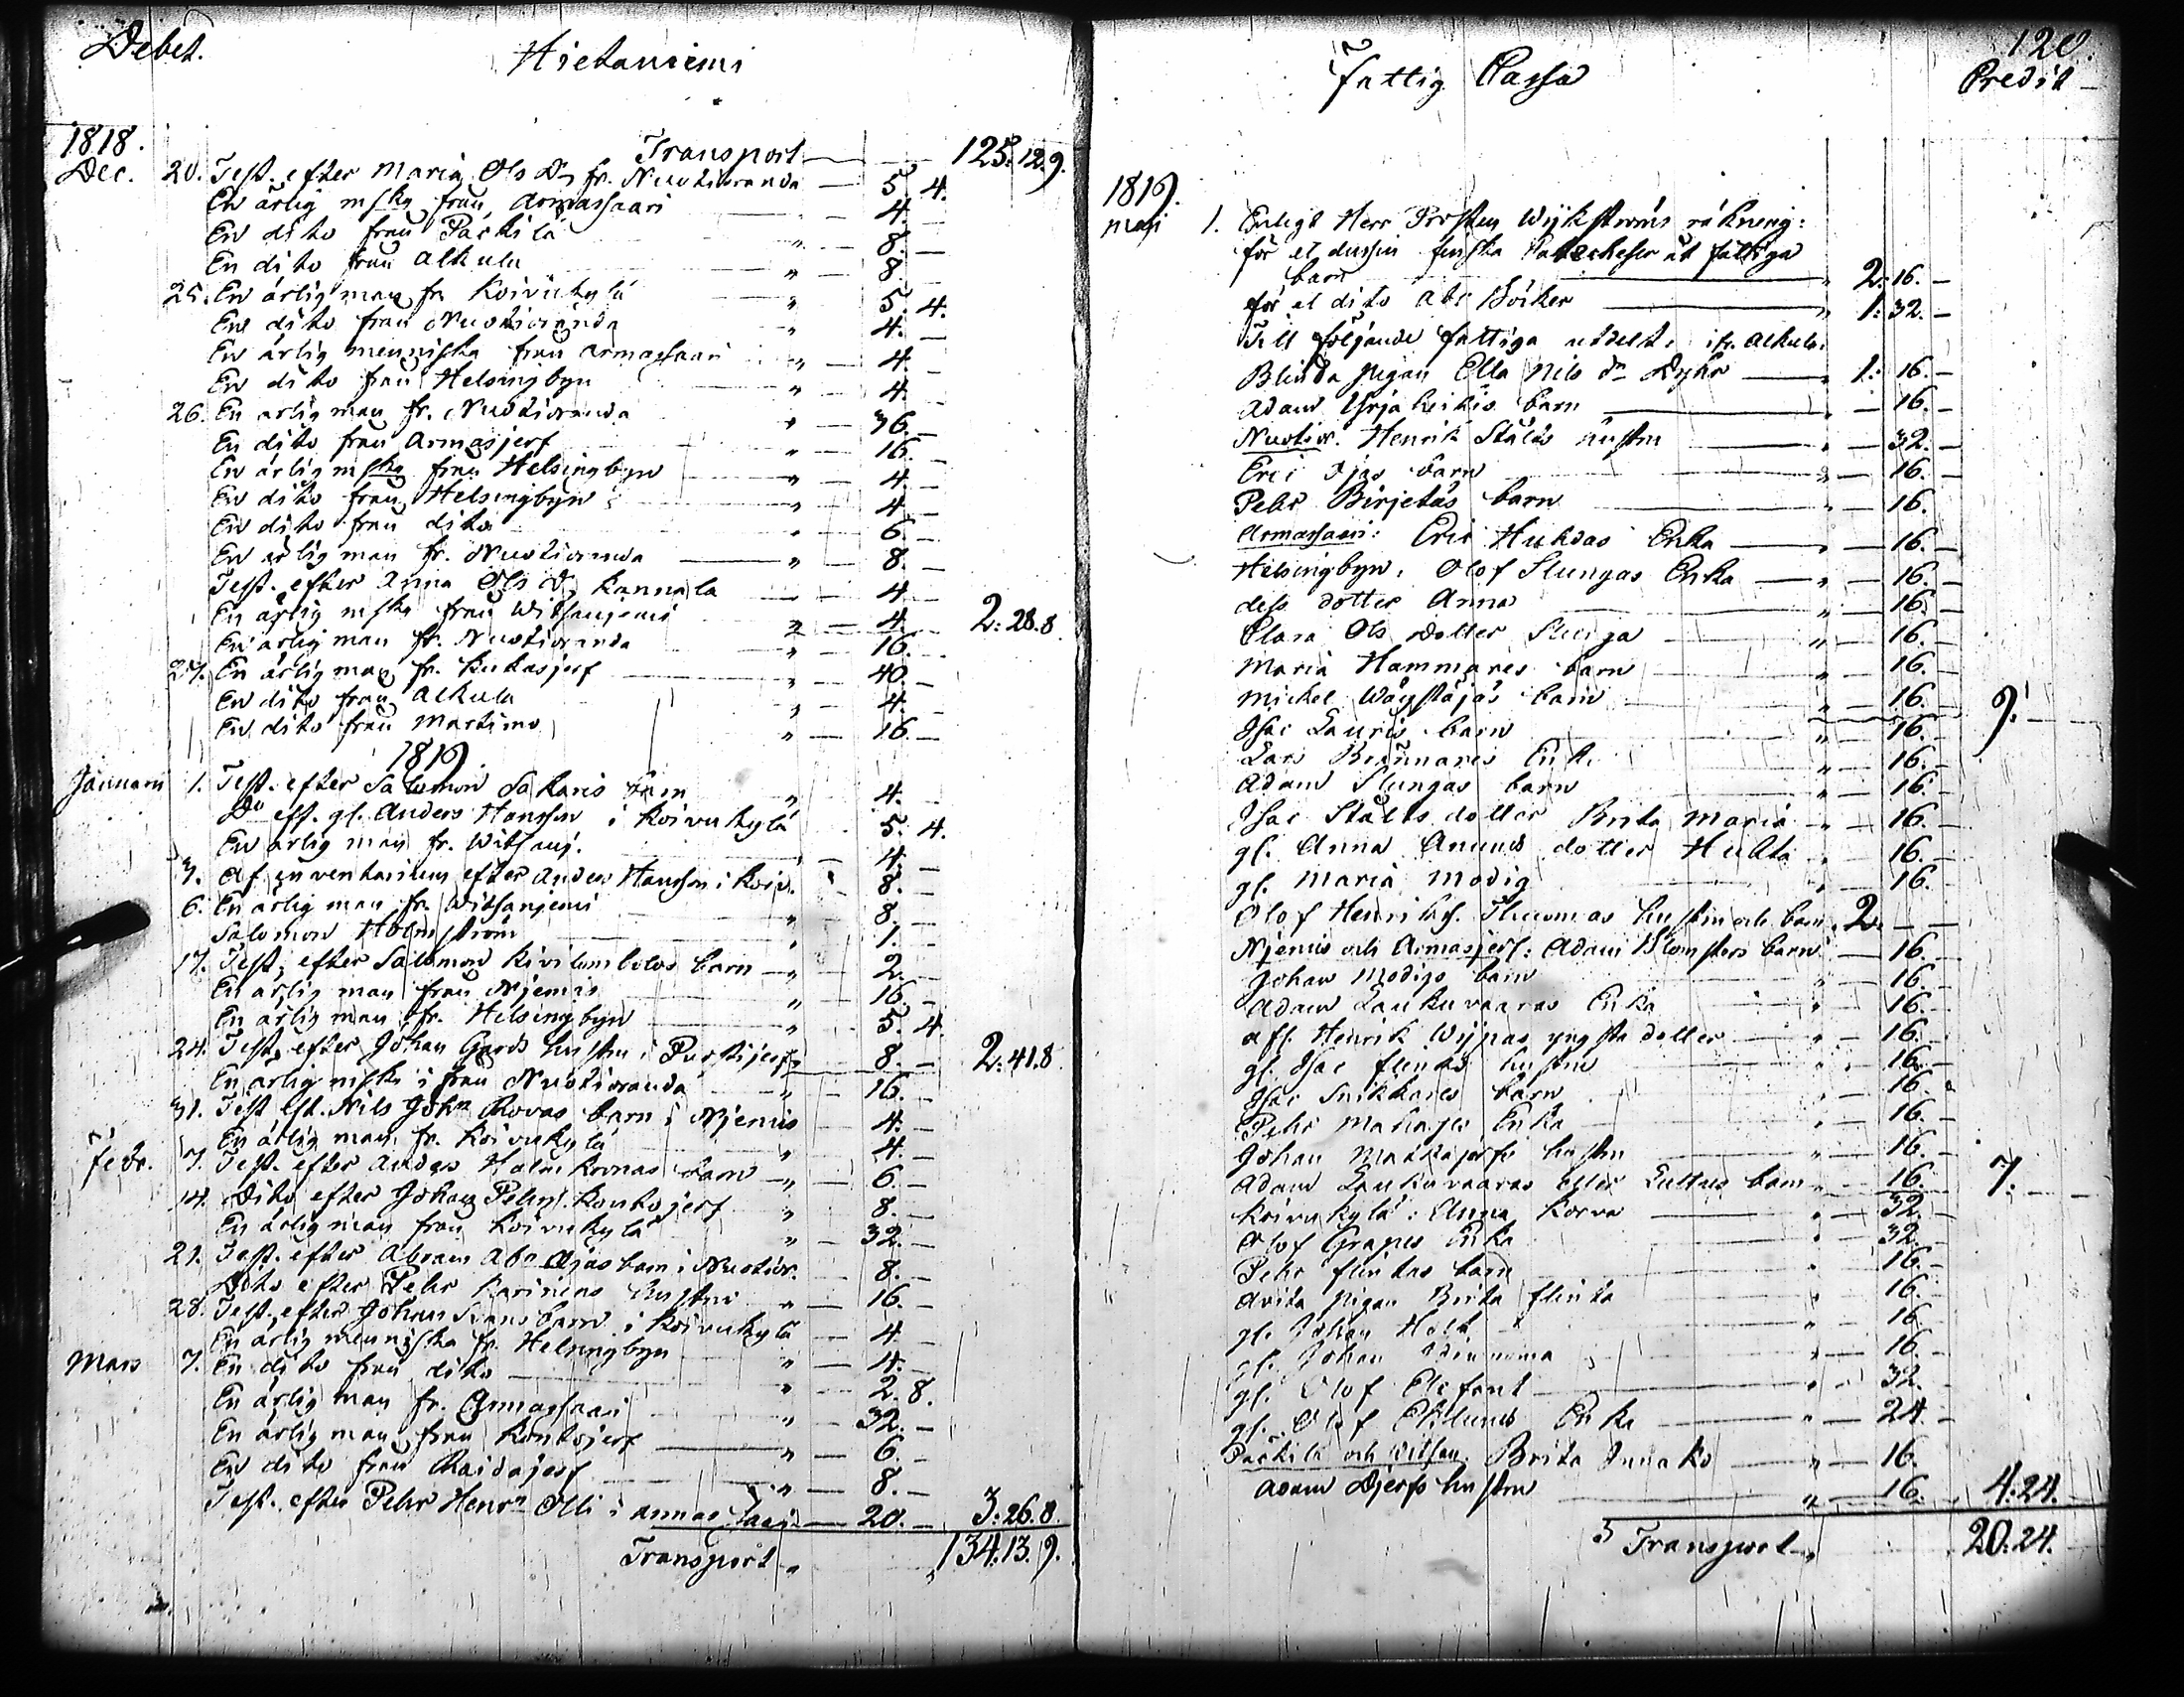 Debet.
Hietaniemi
1818.
Transport — 125. 12. 9.
Dec. 20. Test. efter Maria Ols dr fr. Nuotioranda — 5. 4.
En ärlig mska från Armassaari — 4. —
En dito från Päckilä " — 8. —
En dito från Alkula " — 8 —
25. En ärlig man fr. Koivukylä " — 5. 4.
En dito från Nuotioranda " — 4. —
En ärlig menniska från Armassaari " — 4. —
En dito från Helsingbyn " — 4. —
26. En ärlig man fr. Nuotioranda " — 36. —
En dito från Armasjerf " — 16. —
En ärlig mska från Helsingbyn " — 4. —
En dito från Helsingbyn " — 4 —
En dito från dito " — 6. —
En ärlig man fr. Nuotioranda " — 8. —
Test. efter Anna Ols dr Kannala — 4 —
En ärlig mska från Witsaniemi " — 4. — 2: 28. 8.
En ärlig man fr. Nuotioranda " — 16. —
27. En ärlig man fr. Kukasjerf " — 40. —
En dito från Alkula " — 4. —
En dito från Martimo " — 16. —
1819.
Januarii 1. Test. efter Salomon Sakaris barn " 4. —
Do eft. gl. Anders Hansson i Koivukylä 5. 4.
En ärlig man fr. Witsanj. — 4. —
3. Af Inventarium efter Anders Hansson i Koiv. " 8. —
6. En ärlig man fr. Witsanjemi " 8. —
Salomon Holmström " 1. —
17. Test. efter Salomon Kivilombolos barn — " — 2. —
En ärlig man från Njemis " — 16. —
En ärlig man fr. Helsingbyn " — 5. 4.
24. Test. efter Johan Gards hustru i Purtijerf — 8. — 2: 41. 8.
En ärlig mska i från Nuotioranda " — 16. —
31. Test eft. Nils John Rovas barn i Njemis — 4. —
En ärlig man fr. Koivukylä " — 4. —
Febr. 7. Test. efter Anders barn — " — 6. —
14. Dito efter Johan Pehrs. Kontojerf " 8. —
En ärlig man från Koivukylä " — 32. —
21. Test. efter Abram Abr. Ojas barn i Nuotior. — 8. —
Dito efter Pehr Karinens hustru " — 16. —
28. Test. efter Johan barn i Koivukylä — 4. —
En ärlig menniska fr. Helsingbyn " — 4. —
Mars 7. En dito från dito — " — 2. 8.
En ärlig man fr. Armassaari " — 32. —
En ärlig man från Kontojerf — " — 6. —
En dito från Raidajerf " — 8. —
Test. efter Pehr Henrn Olli i Armassaari — 20. — 3: 26. 8.
Transport " 134. 13. 9.
120.
Fattig Cassa
Credit
1819.
Maji 1. Enligt Herr Prosten Wykströms räkning:
för et dussin finska Catecheser åt fattiga
barn " 2: 16. —
för et dito Abc Böcker — " 1: 32. —
Till följande fattiga utdelt. ifr. Alkula:
Blinda pigan Ella Nils dr Dyhr — " 1: 16. —
Adam barn — " — 16. —
Nuotior. Henrik Ståls hustru — " — 32. —
Eric Ojas barn " — 16. —
Pehr Birjetas barn " — 16.
Armassaari: Eric Huhdas Enka — " — 16. —
Helsingbyn: Olof Slungas Enka — " — 16. —
dess dotter Anna " — 16. —
Clara Ols dotter Slunga " — 16. —
Maria Hammares barn " — 16. —
Michel barn " — 16. —
Isac Lauris barn " — 16. — 9. —
Lars Brännares Enk. " — 16. —
Adam Slungas barn " — 16. —
Isac Ståles dotter Brita Maria " — 16. —
gl. Anna Anunds dotter Huhta " — 16. —
gl. Maria Modig " — 16. —
Olof Henrikss. hustru och barn " 2. — —
Njemis och Armasjerf: Adam Blomsters barn — 16. —
Johan Modigs barn " — 16. —
Adam Laukuvaaras Enka " — 16. —
afl. Henrik yngsta dotter " — 16. —
gl. Isac Flinkas hustru " — 16. —
Isac Snikkares barn " — 16. —
Pehr Enka " — 16. —
Johan hustru " — 16. —
Adam Laukuvaaras eller barn " 16. — 7. —
Koivukylä: Anna Korva — " — 32. —
Olof Grapes Enka " — 32. —
Pehr Flinkas barn 16. —
pigan Brita Flinka " — 16. —
gl. Johan Holk " — 16 —
gl. Johan " — 16. —
gl. Olof Elefant — " — 32. —
gl. Olof Eklunds Enka — " — 24 —
Päckilä och Witsan. Brita — " — 16.
Adam Djerfs hustru — " — 16. 4: 24.
Transport " 20: 24.